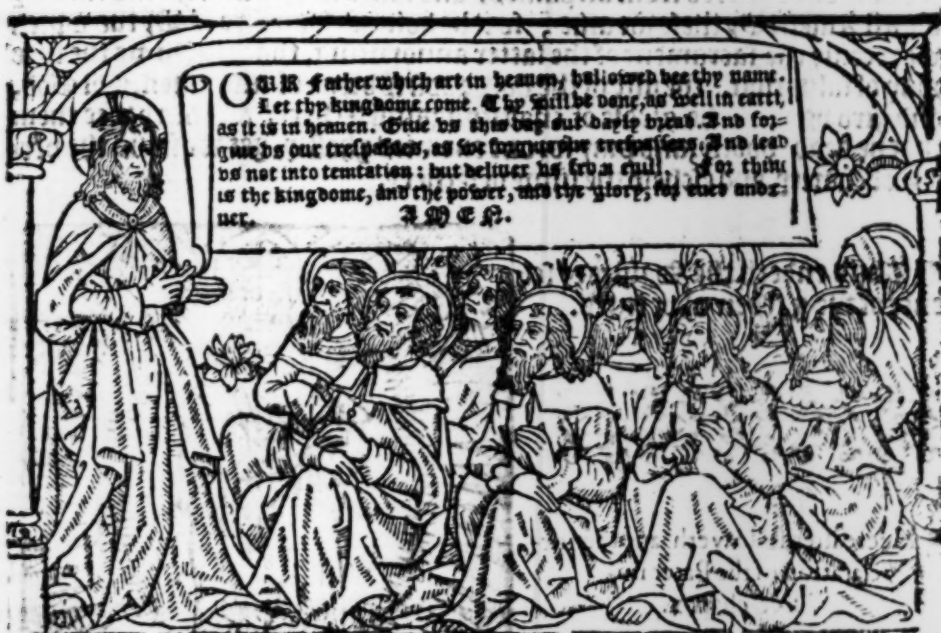 OUR Father which art in heauen, hallowed bee thy name.
Let thy kingdome come. Thy will be done, as well in earth,
as it is in heauen. Giue vs this day our dayly bread. And for=
giue vs our trespasses, as we forgiue our trespassers. And lead
vs not into temtation: but deliuer vs from euill. For thine
is the kingdome, and the power, and the glory, for euer and e=
uer. AMEN.